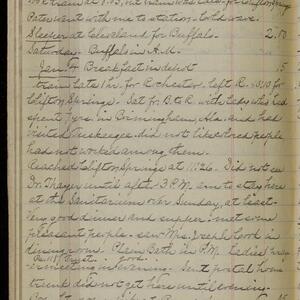 train at 7.45, but train was late for Clifton Springs
Pater went with me to station - cold wave.
Sleeper at Cleveland for Buffalo. 2.00
Saturday - Buffalo in A.M.
Jan. Breakfast in depot 15
train late 1 hr. for Rochester. left R. 10/10 for
Clifton Springs. Sat for B. to R. with lady who had
spent 7 yrs. in Birmingham, Ala. and had
visited Tuskegee. did not like colored people
had not worked among them.
Reached Clifton Springs at 11:26. Did not see
Dr. Thayer until aft. 3 P.M. am to stay here
at the Sanitarium over Sunday, at least -
very good dinner and supper. met some
pleasant people - saw Mrs. Joseph Cook in
dining room. Plain Bath in P.M. Ladies' pray
good.
meeting in evening. Sent postal home
trunk did not get here until evening.